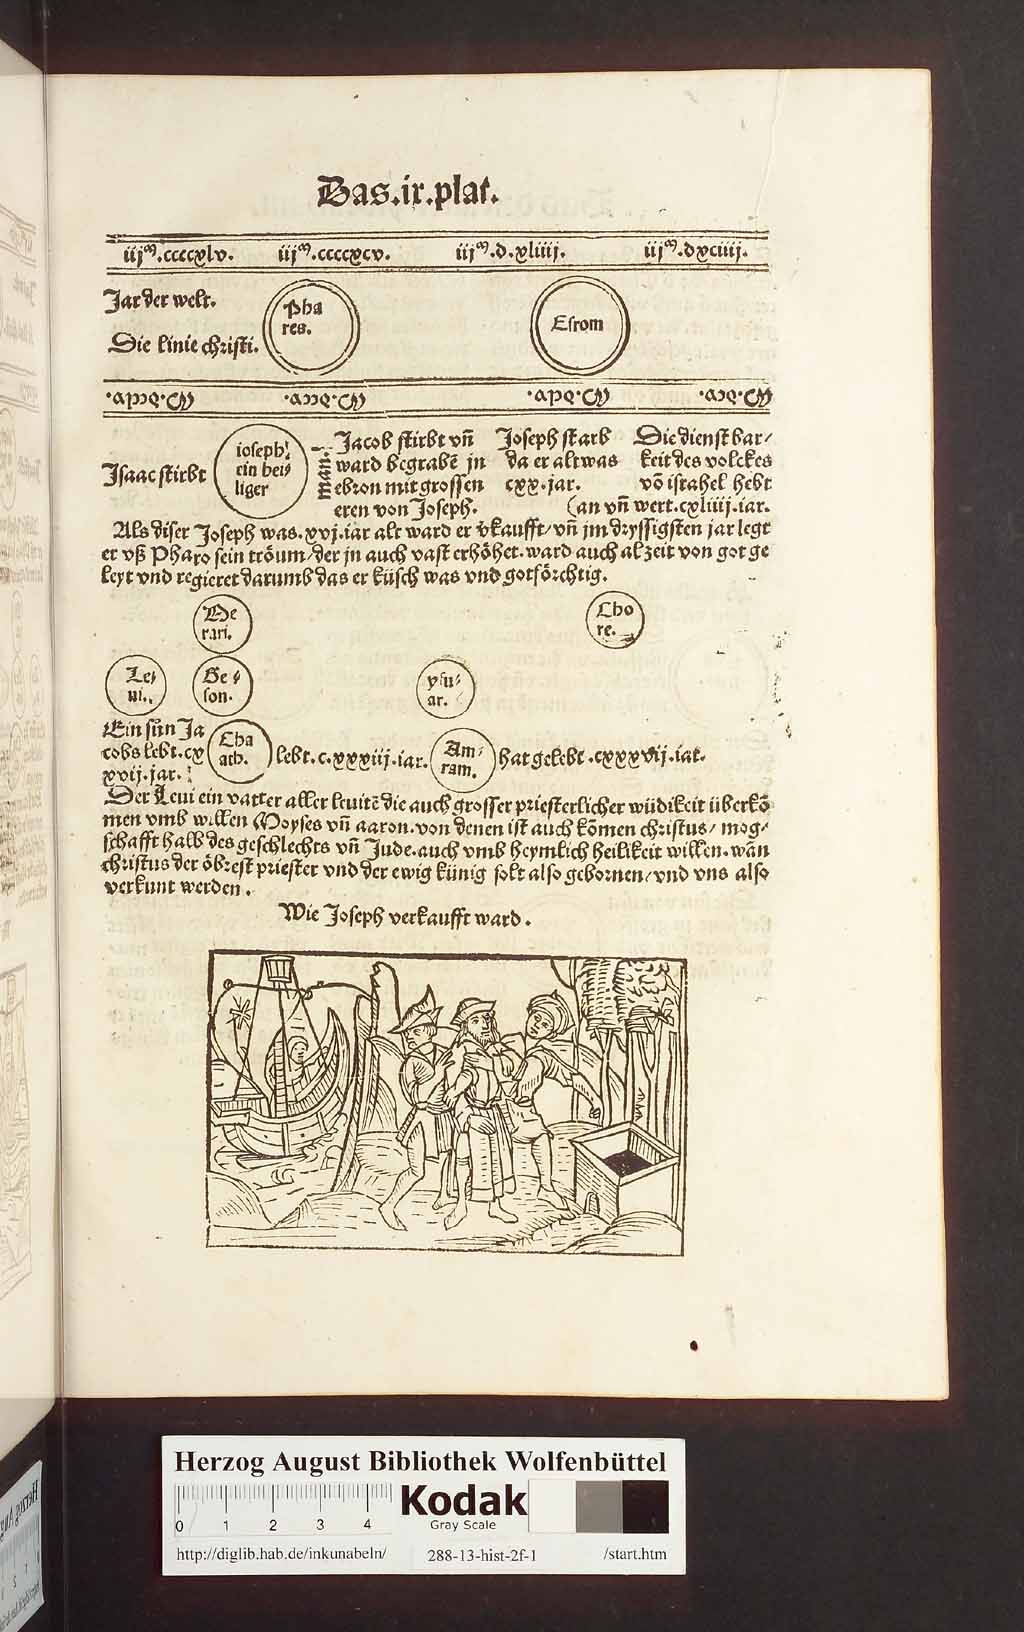 Das.ix.plat.
iijᵐ.ccccxlv. iijᵐ.ccccxcv. iijᵐ.d.xliiij. iijᵐ.dxciiij.
Jar der welt.
Pha
res.
Esrom
Die linie christi.
Isaac stirbt
ioseph
ein hei
liger
man.
Jacob stirbt vñ
ward begrabē jn
ebron mit grossen
eren von Joseph.
Joseph starb
da er alt was
cxx.jar.
Die dienstbar/
keit des volckes
vō israhel hebt
(an vñ wert.cxliiij.iar.
Als diser Joseph was.xvj.iar alt ward er v̄kaufft/vñ jm dryssigsten jar legt
er vß Pharo sein tröum/der jn auch vast erhöhet.ward auch alzeit von got ge
leyt vnd regieret darumb das er küsch was vnd gotförchtig.
Me
rari.
Cho
re.
Le/
ui.
Ge/
son.
ysu/
ar.
Ein sün Ja
cobs lebt.cx
xvij.jar.
Cha
ath.
lebt.c.xxxiij.iar.
Am/
ram.
hat gelebt.cxxxvij.iar.
Der Leui ein vatter aller leuitē die auch grosser priesterlicher wüdikeit überkō
men vmb willen Moyses vñ aaron.von denen ist auch kōmen christus/mog/
schafft halb des geschlechts vñ Jude.auch vmb heymlich heilikeit willen.wān
christus der öbrest priester vnd der ewig künig solt also gebornen/vnd vns also
verkunt werden.
Wie Joseph verkaufft ward.
Herzog August Bibliothek Wolfenbüttel
0 1 2 3 4
Kodak
Gray Scale
http://diglib.hab.de/inkunabeln/ 288-13-hist-2f-1 /start.htm